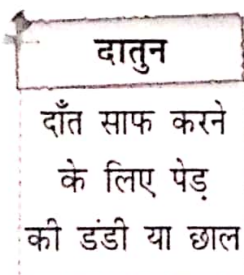 दातुन
दाँत साफ करने
के लिए पेड़
की डंडी या छाल